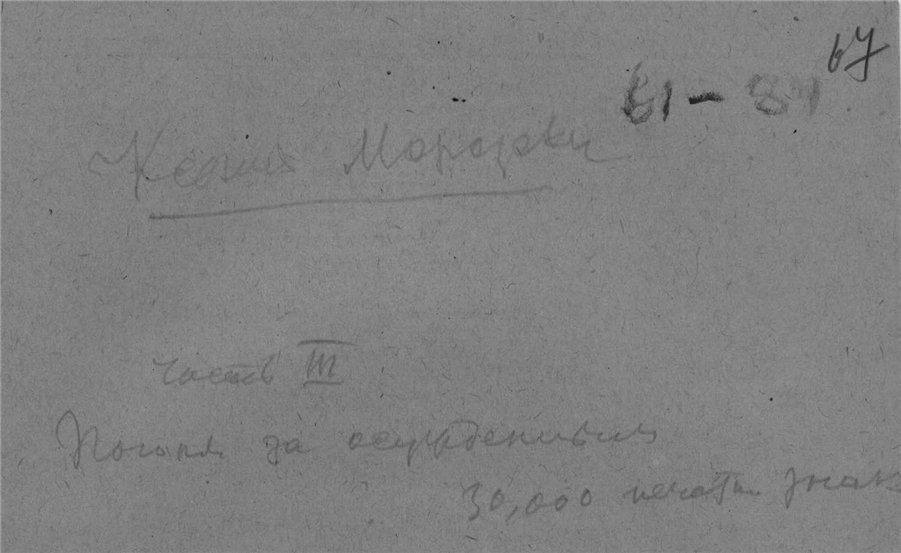 67
61 – 81
Ксения Мопорки
часть III
Погоня за осужденным
30,000 печатн. знак